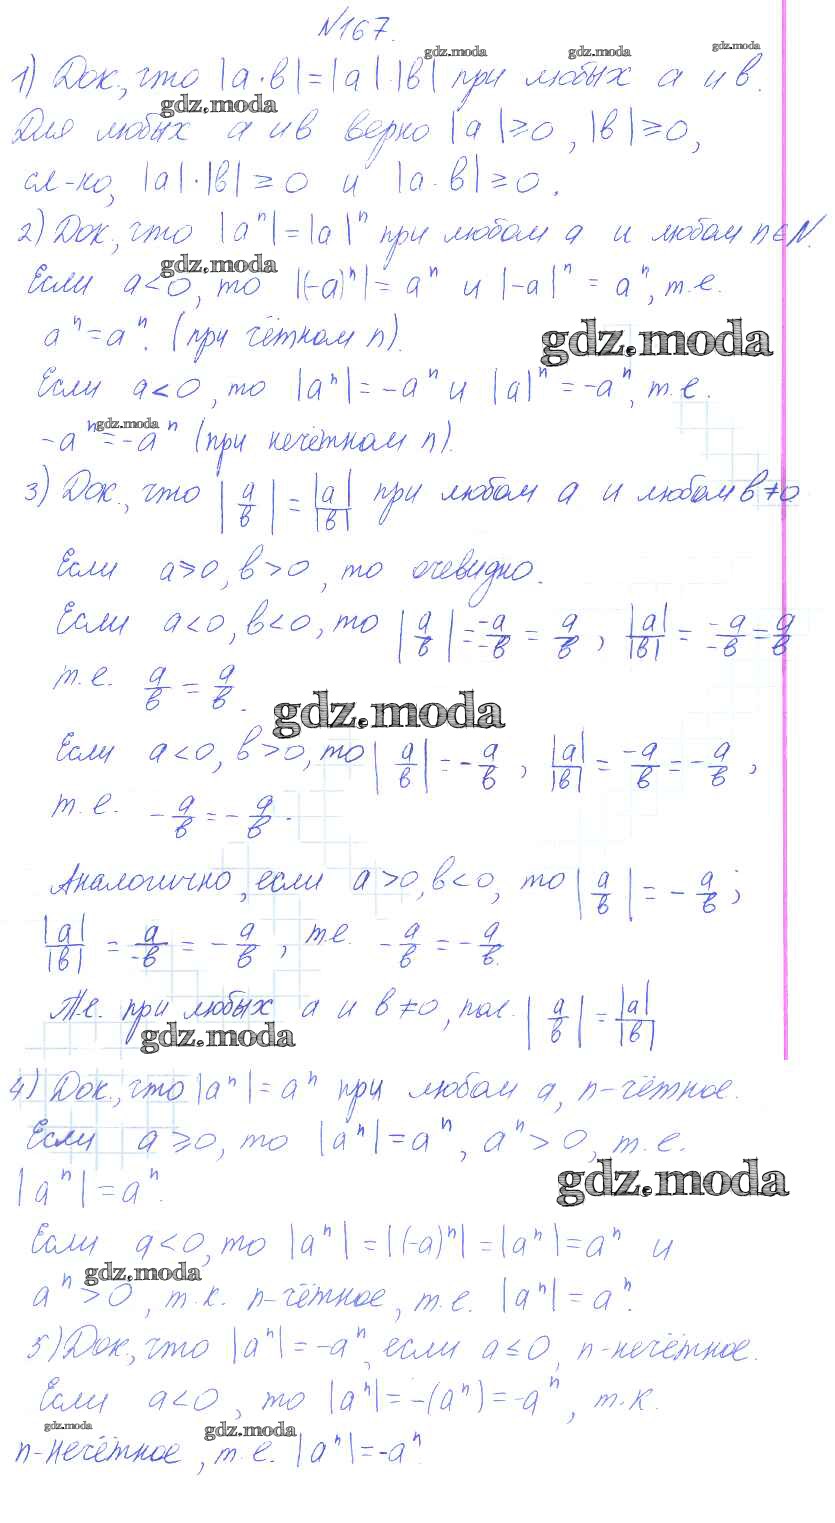 №167.
1) Док., что |a·b|=|a|·|b| при любых a и b.
Для любых a и b верно |a|≥0, |b|≥0,
сл-но, |a|·|b|≥0 и |a·b|≥0.
2) Док., что |aⁿ|=|a|ⁿ при любом a и любом n∈N.
Если a<0, то |(-a)ⁿ|=aⁿ и |-a|ⁿ=aⁿ, т.е.
aⁿ=aⁿ. (при чётном n).
gdz.moda
Если a<0, то |aⁿ|=-aⁿ и |a|ⁿ=-aⁿ, т.е.
-aⁿ=-aⁿ (при нечётном n).
3) Док., что |a/b|=|a|/|b| при любом a и любом b≠0
Если a≥0, b>0, то очевидно.
Если a<0, b<0, то |a/b|=-a/-b=a/b, |a|/|b|=-a/-b=a/b
т.е. a/b=a/b.
gdz.moda
Если a<0, b>0, то |a/b|=-a/b, |a|/|b|=-a/b=-a/b,
т.е. -a/b=-a/b.
Аналогично, если a>0, b<0, то |a/b|=-a/b;
|a|/|b|=a/-b=-a/b, т.е. -a/b=-a/b.
Т.е. при любых a и b≠0, пол. |a/b|=|a|/|b|
gdz.moda
4) Док., что |aⁿ|=aⁿ при любом a, n-чётное.
Если a≥0, то |aⁿ|=aⁿ, aⁿ>0, т.е.
|aⁿ|=aⁿ.
gdz.moda
Если a<0, то |aⁿ|=|(-a)ⁿ|=|aⁿ|=aⁿ и
aⁿ>0, т.к. n-чётное, т.е. |aⁿ|=aⁿ.
5) Док., что |aⁿ|=-aⁿ, если a≤0, n-нечётное.
Если a<0, то |aⁿ|=-(aⁿ)=-aⁿ, т.к.
n-нечётное, т.е. |aⁿ|=-aⁿ